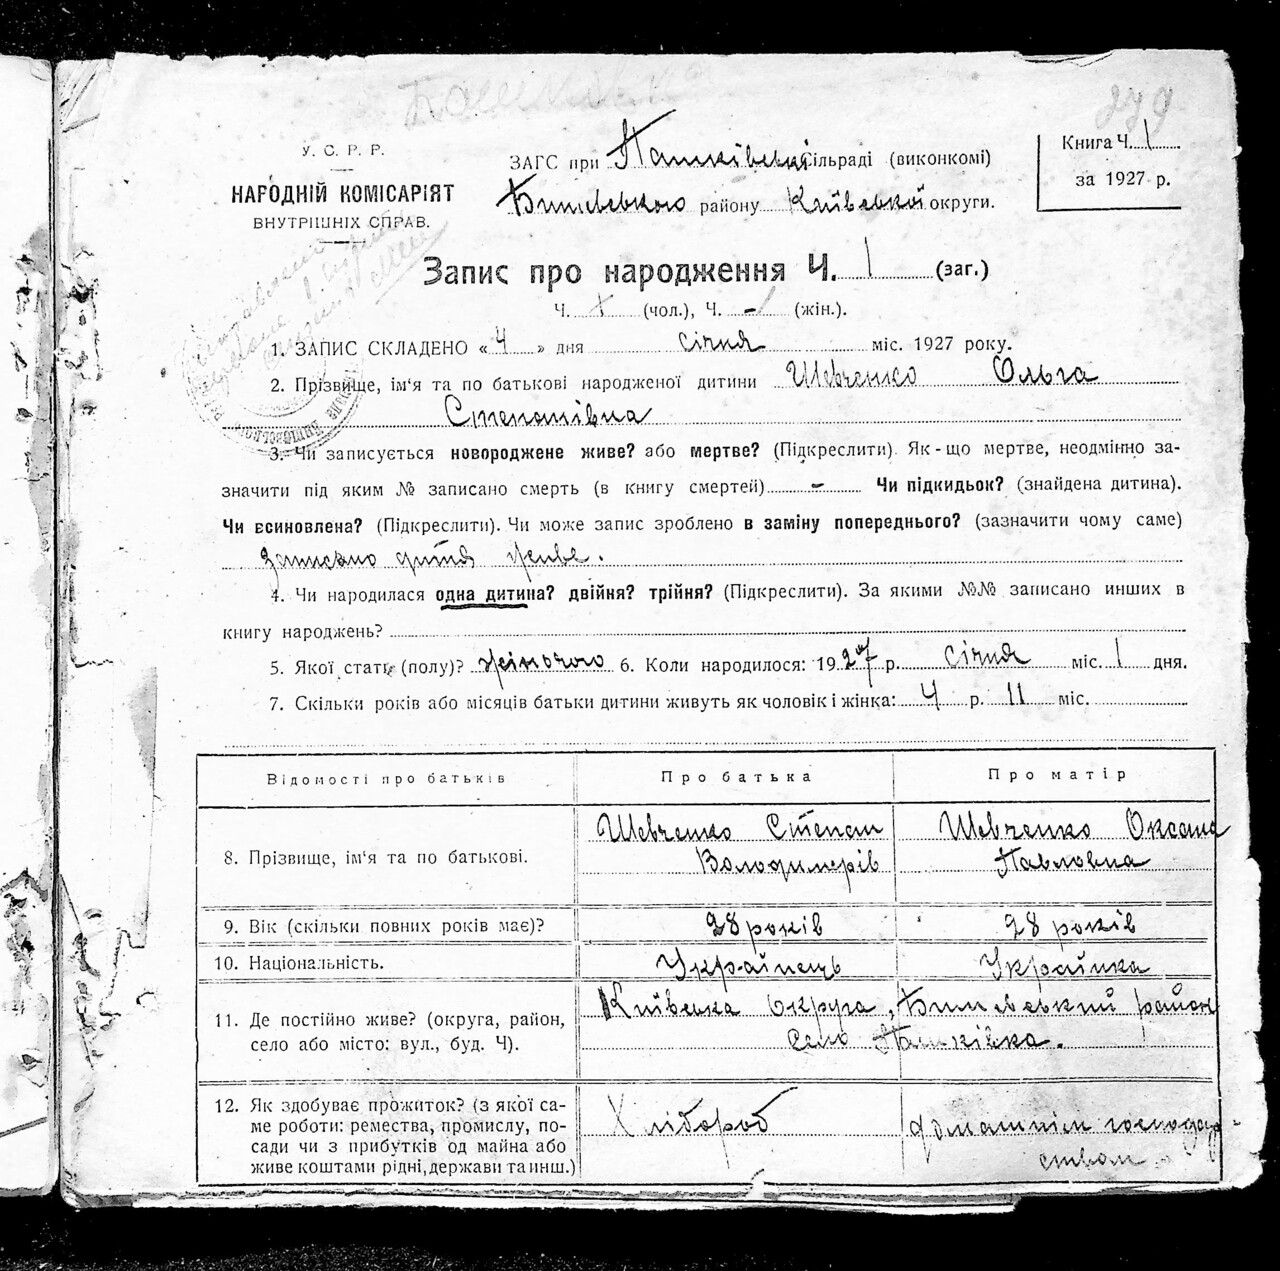 279
У. С. Р. Р.
НАРОДНІЙ КОМІСАРІЯТ
ВНУТРІШНІХ СПРАВ.
ЗАГС при Пашківській сільраді (виконкомі)
Бишівського району Київської округи.
Книга Ч. 1
за 1927 р.
Запис про народження Ч. 1 (заг.)
Ч. (чол.), Ч. (жін.).
1. ЗАПИС СКЛАДЕНО « 4 » дня січня міс. 1927 року.
2. Прізвище, ім'я та по батькові народженої дитини Шевченко Ольга
Степанівна
3. Чи записується новороджене живе? або мертве? (Підкреслити). Як-що мертве, неодмінно за-
значити під яким № записано смерть (в книгу смертей) - Чи підкидьок? (знайдена дитина).
Чи всиновлена? (Підкреслити). Чи може запис зроблено в заміну попереднього? (зазначити чому саме)
записано дитя живе.
4. Чи народилася одна дитина? двійня? трійня? (Підкреслити). За якими №№ записано инших в
книгу народжень?
5. Якої стати (полу)? жіночого 6. Коли народилося: 1927 р. січня міс. 1 дня.
7. Скільки років або місяців батьки дитини живуть як чоловік і жінка: 4 р. 11 міс.
Відомості про батьків
Про батька
Про матір
8. Прізвище, ім'я та по батькові.
Шевченко Степан
Володимерів
Шевченко Оксана
Павловна
9. Вік (скільки повних років має)?
28 років
28 років
10. Національність.
Українець
Українка
11. Де постійно живе? (округа, район,
село або місто: вул., буд. Ч).
Київська Округа, Бишівський район
село Пашківка.
12. Як здобуває прожиток? (з якої са-
ме роботи: ремества, промислу, по-
сади чи з прибутків од майна або
живе коштами рідні, держави та инш.)
Хлібороб
домашнім господар-
ством